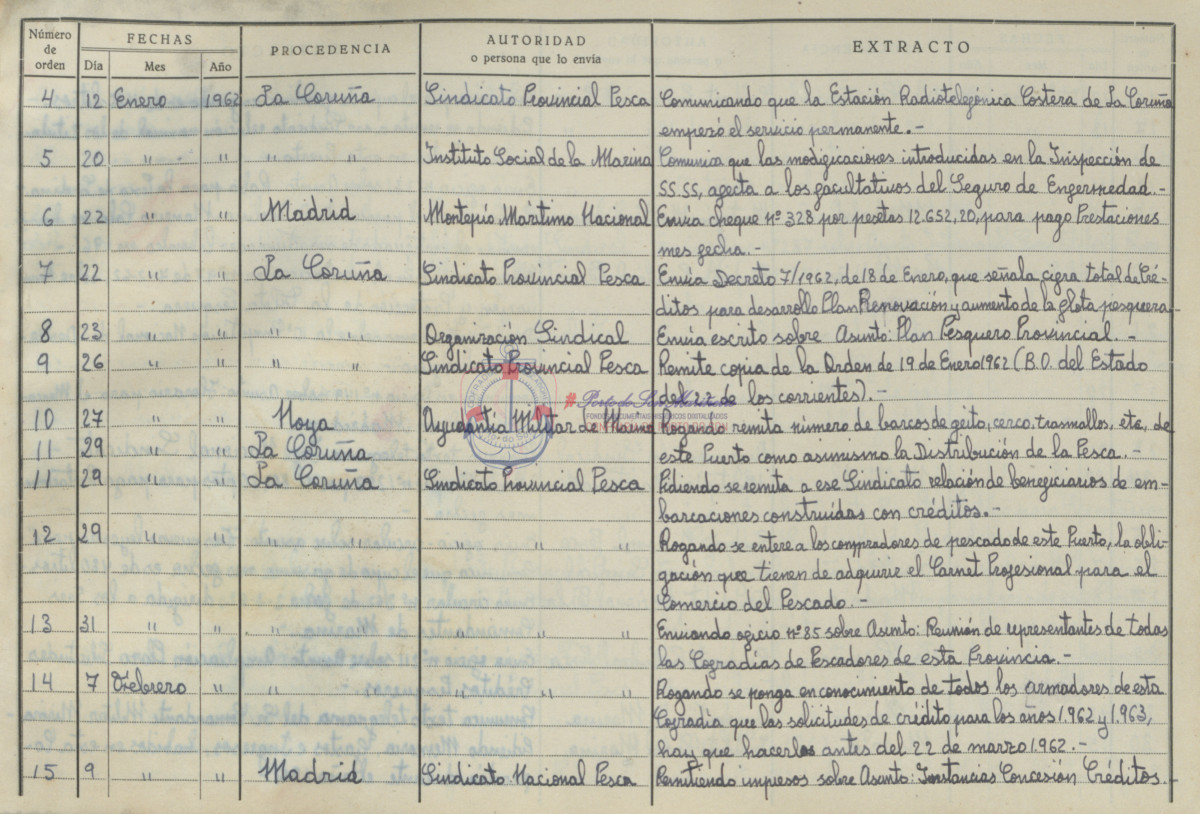 Número de orden FECHAS PROCEDENCIA AUTORIDAD o persona que lo envía EXTRACTO
Día Mes Año
4 12 Enero 1962 La Coruña Sindicato Provincial Pesca Comunicando que la Estación Radiotelegónica Costera de La Coruña
empezó el servicio permanente.-
5 20 " " " " Instituto Social de la Marina Comunica que las modificaciones introducidas en la Inspección de
SS.SS, afecta a los facultativos del Seguro de Enfermedad.-
6 22 " " Madrid Montepío Marítimo Nacional Envía cheque nº 328 por pesetas 12.652,20, para pago Prestaciones
mes fecha.-
7 22 " " La Coruña Sindicato Provincial Pesca Envía Decreto 7/1962, de 18 de Enero, que señala cifra total de Cré-
ditos para desarrollo Plan Renovación y aumento de la flota pesquera.-
8 23 " " " Organización Sindical Envía escrito sobre Asunto: Plan Pesquero Provincial.-
9 26 " " " " Sindicato Provincial Pesca Remite copia de la Orden de 19 de Enero 1962 (B.O. del Estado
del 22 de los corrientes).-
10 27 " " Noya Ayudantía Militar de Marina Rogando remita número de barcos de jeito, cerco, trasmallos, etc, de
11 29 La Coruña este Puerto como asimismo la Distribución de la Pesca.-
11 29 " " La Coruña Sindicato Provincial Pesca Pidiendo se remita a ese Sindicato relación de beneficiarios de em-
barcaciones construídas con créditos.-
12 29 " " " " " " " Rogando se entere a los compradores de pescado de este Puerto, la obli-
gación que tienen de adquirir el Carnet Profesional para el
Comercio del Pescado.-
13 31 " " " " " " Enviando oficio nº 85 sobre Asunto: Reunión de representantes de todas
las Cofradías de Pescadores de esta Provincia.-
14 7 Febrero " " " " " Rogando se ponga en conocimiento de todos los armadores de esta
Cofradía que las solicitudes de crédito para los años 1.962 y 1.963,
hay que hacerlas antes del 22 de marzo 1.962.-
15 9 " " Madrid Sindicato Nacional Pesca Remitiendo impresos sobre Asunto: Instancias Concesión Créditos.-